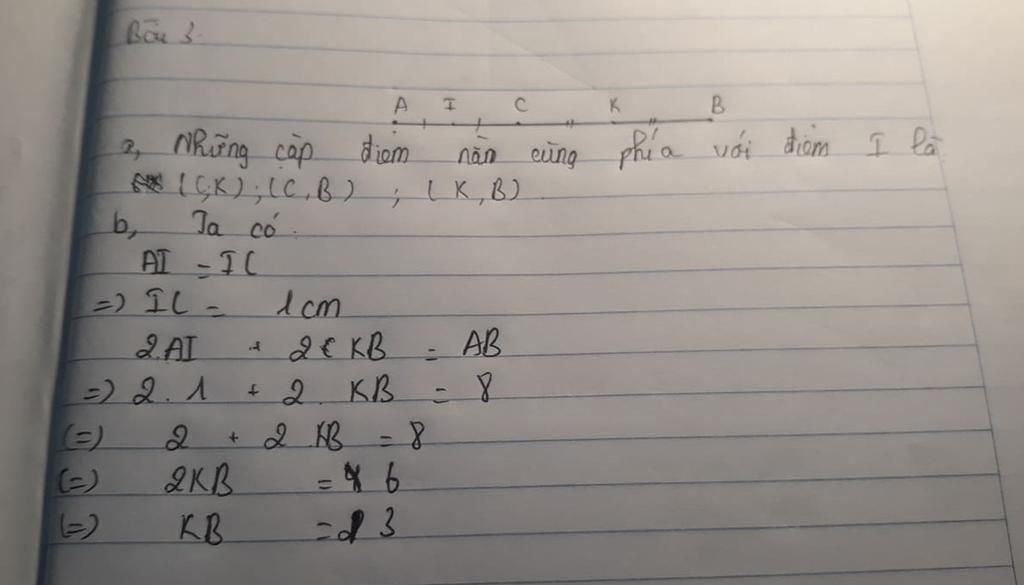 Bài 3.
A I C K B
a, Những cặp điểm nằn cùng phía với điểm I là
(C,K); (C,B) ; (K,B)
b, Ta có:
AI = IC
=> IC = 1cm
2.AI + 2 KB = AB
=> 2.1 + 2. KB = 8
(=) 2 + 2 KB = 8
(=) 2KB = 6
(=) KB = 3